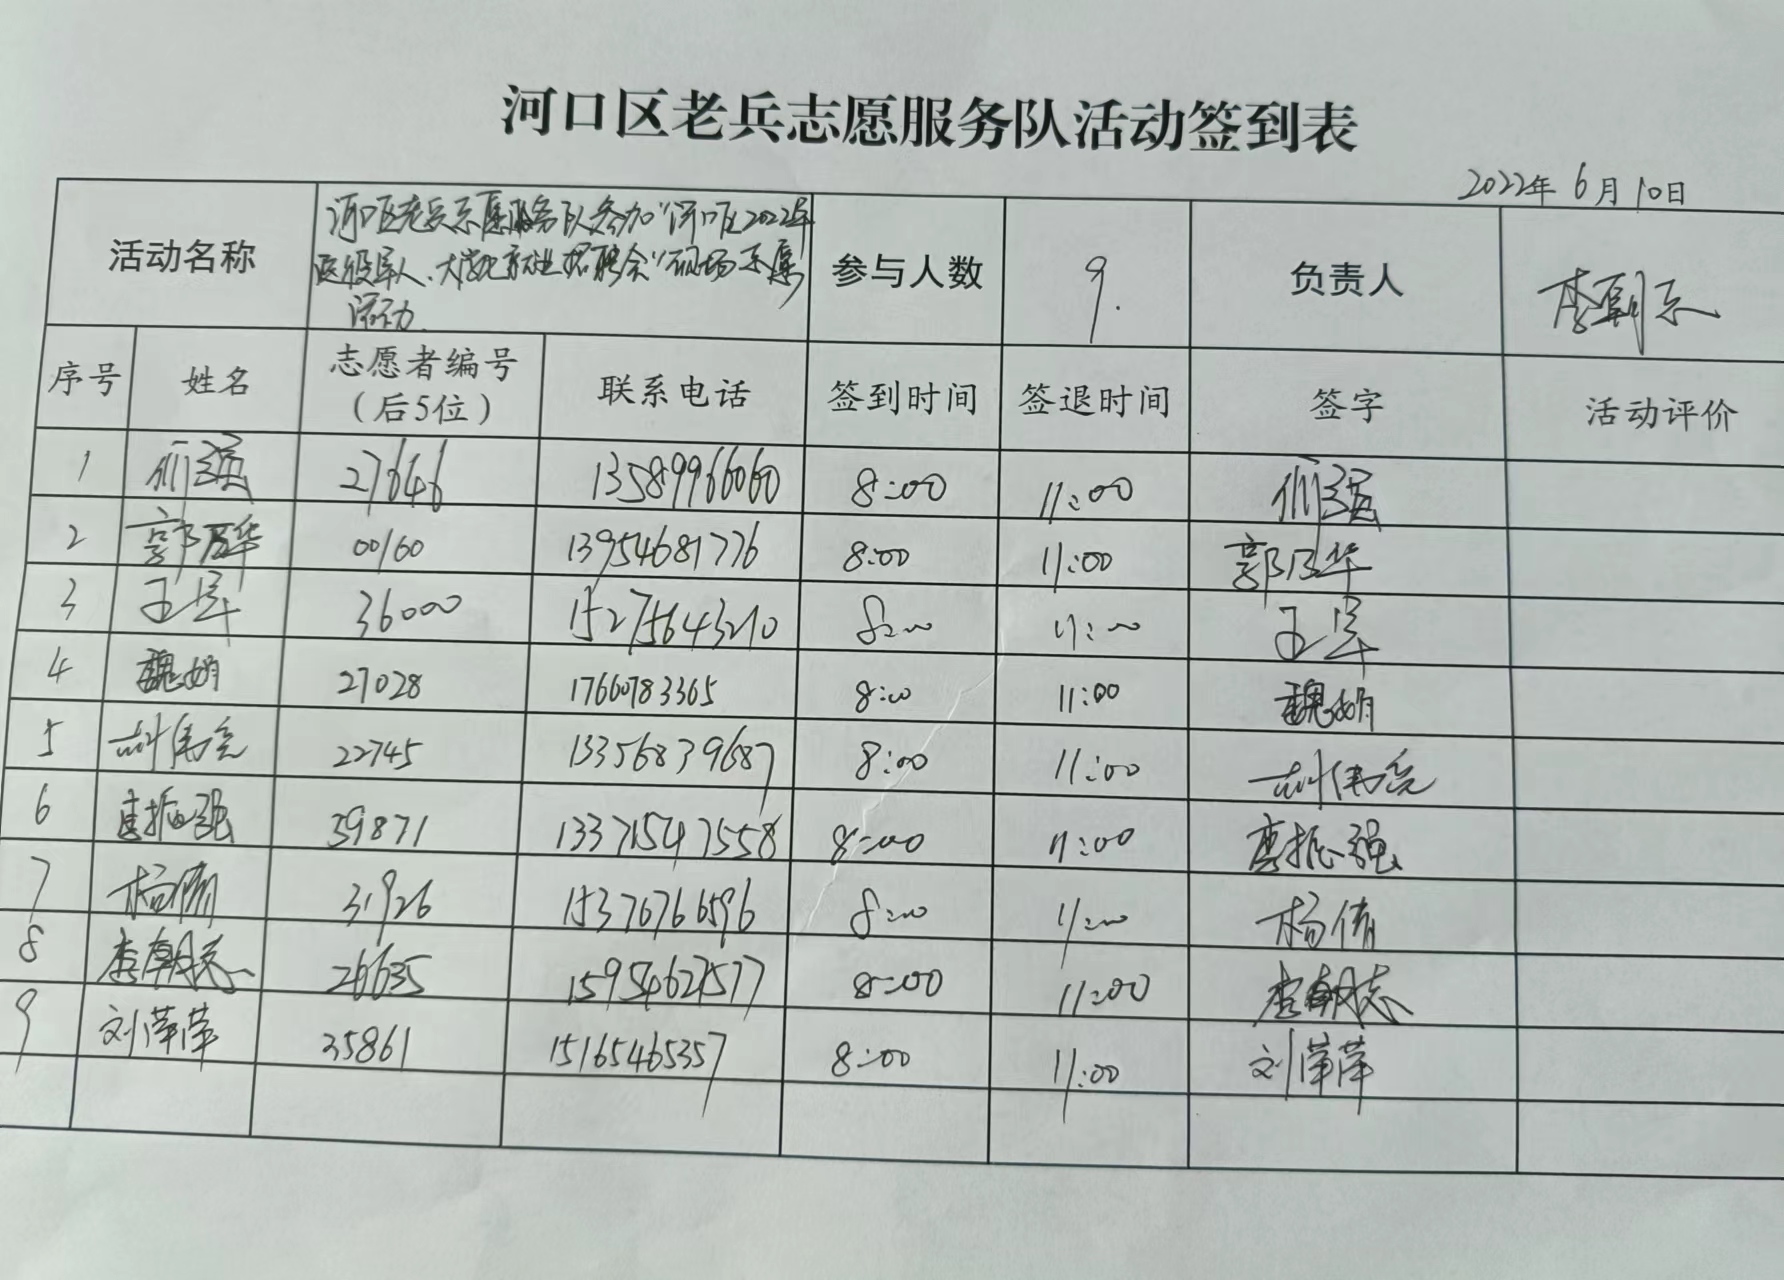 河口区老兵志愿服务队活动签到表
2022年 6月 10日
活动名称
河口区老兵志愿服务队参加“河口区2022年
退役军人、大学生就业招聘会”现场志愿
活动
参与人数 9. 负责人 李朝志
序号 姓名 志愿者编号（后5位） 联系电话 签到时间 签退时间 签字 活动评价
1 27646 13589966060 8:00 11:00
2 郭乃华 00160 13954681776 8:00 11:00 郭乃华
3 王军 36000 15275643210 8:00 11:00 王军
4 魏娟 27028 17660783365 8:00 11:00 魏娟
5 22745 13356839687 8:00 11:00
6 李振强 39871 13371547558 8:00 11:00 李振强
7 杨倩 31926 15376766596 8:00 11:00 杨倩
8 李朝志 26635 15954621577 8:00 11:00 李朝志
9 刘萍萍 35861 15165465357 8:00 11:00 刘萍萍